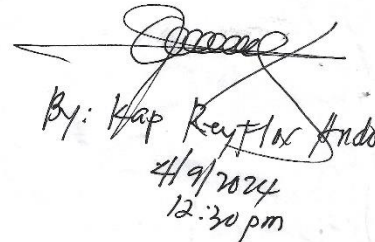 By: Kap Rey Flor Ando
4/9/2024
12:30 pm